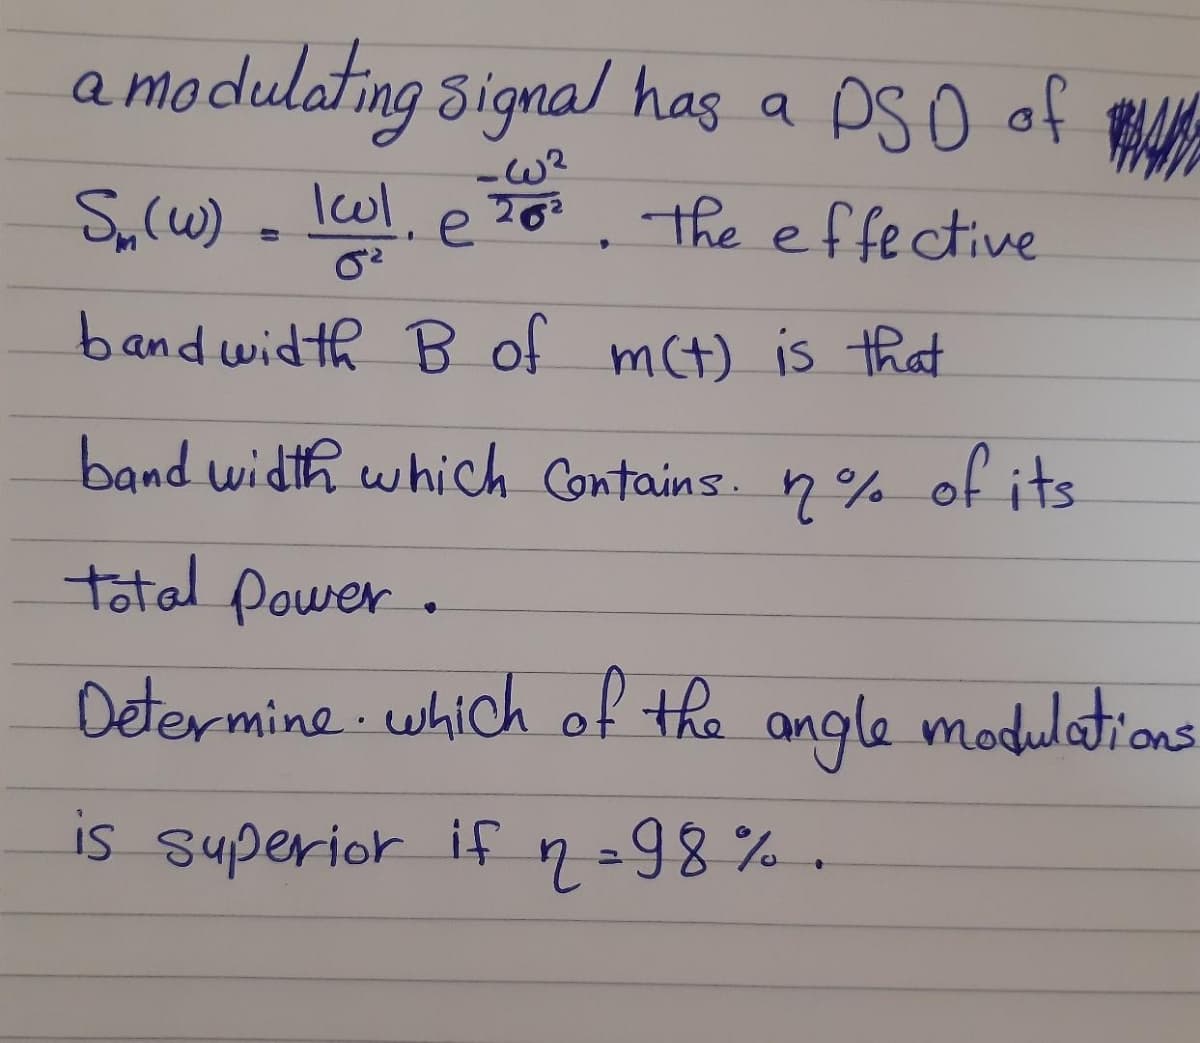 a modulating signal has a PSD of
Sm(ω) = |ω|/σ² . e^(-ω²/2σ²) . the effective
bandwidth B of m(t) is that
band width which Contains. η % of its
total power .
Determine . which of the angle modulations
is superior if η = 98 % .